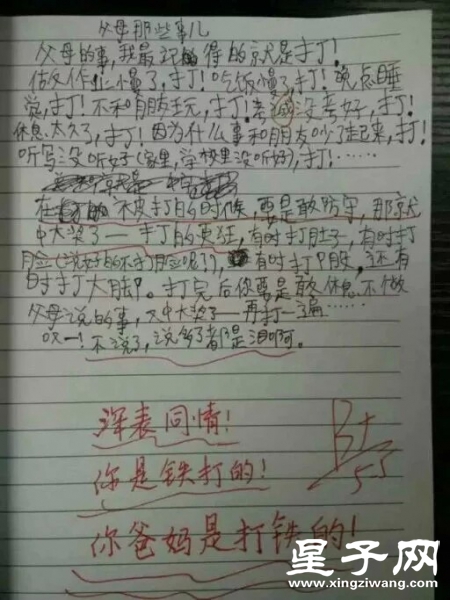 父母那些事儿
父母的事,我最记的得的就是打!
做作业慢了,打!吃饭慢了,打!晚点睡
觉,打!不和朋友玩,打!考试没考好,打!
休息太久了,打!因为什么事和朋友吵了起来,打!
听写没听好(家里,学校里没听好),打!……
在被打的时候,要是敢防守,那就
中大奖了——打的更狂,有时打肚子,有时打
脸(说好的不打脸呢?!),有时打PP股,还有
时打大腿。打完后你要是敢休息不做
父母说的事,又中大奖了——再打一遍……
哎——!不说了,说多了都是泪啊。
深表同情!
你是铁打的!
你爸妈是打铁的!
B+
星子网
www.xingziwang.com